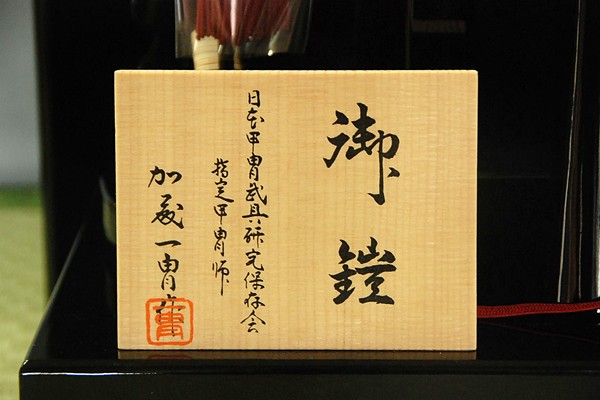 御鎧
日本甲冑武具研究保存会
指定甲冑師
加藤一冑作